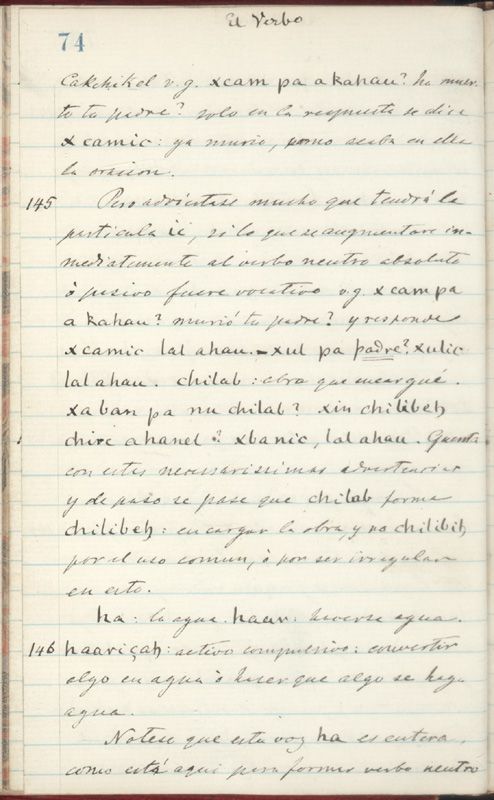 El Verbo
74
Cakchikel v.g. xcam pa a kahau? ha muer-
to tu padre? solo en la respuesta se dice
xcamic: ya murio, como acaba en ella
la oracion.
145 Pero adviertase mucho que tendrá la
particula ic, si lo que se augmentare in-
mediatamente al verbo neutro absoluto
ò pasivo fuere vocativo v.g. xcam pa
a kahau? murió tu padre? y responde
xcamic lal ahau. - xul pa padre? xulic
lal ahau. chilab: obra que encargué.
xaban pa nu chilab? xin chilibeh
chire ahanel? xbanic, lal ahau. Quenta
con estas necessarissimas advertencias
y de paso se pase que chilab forma
chilibeh: encargar la obra, y no chilibih
por el uso comun, ò por ser irregular
en esto.
ha: la agua. haar: hacerse agua.
146 haariçah: activo compulsivo: convertir
algo en agua ò haser que algo se haga
agua.
Notese que esta voz ha es entera,
como está aqui para formar verbo neutro